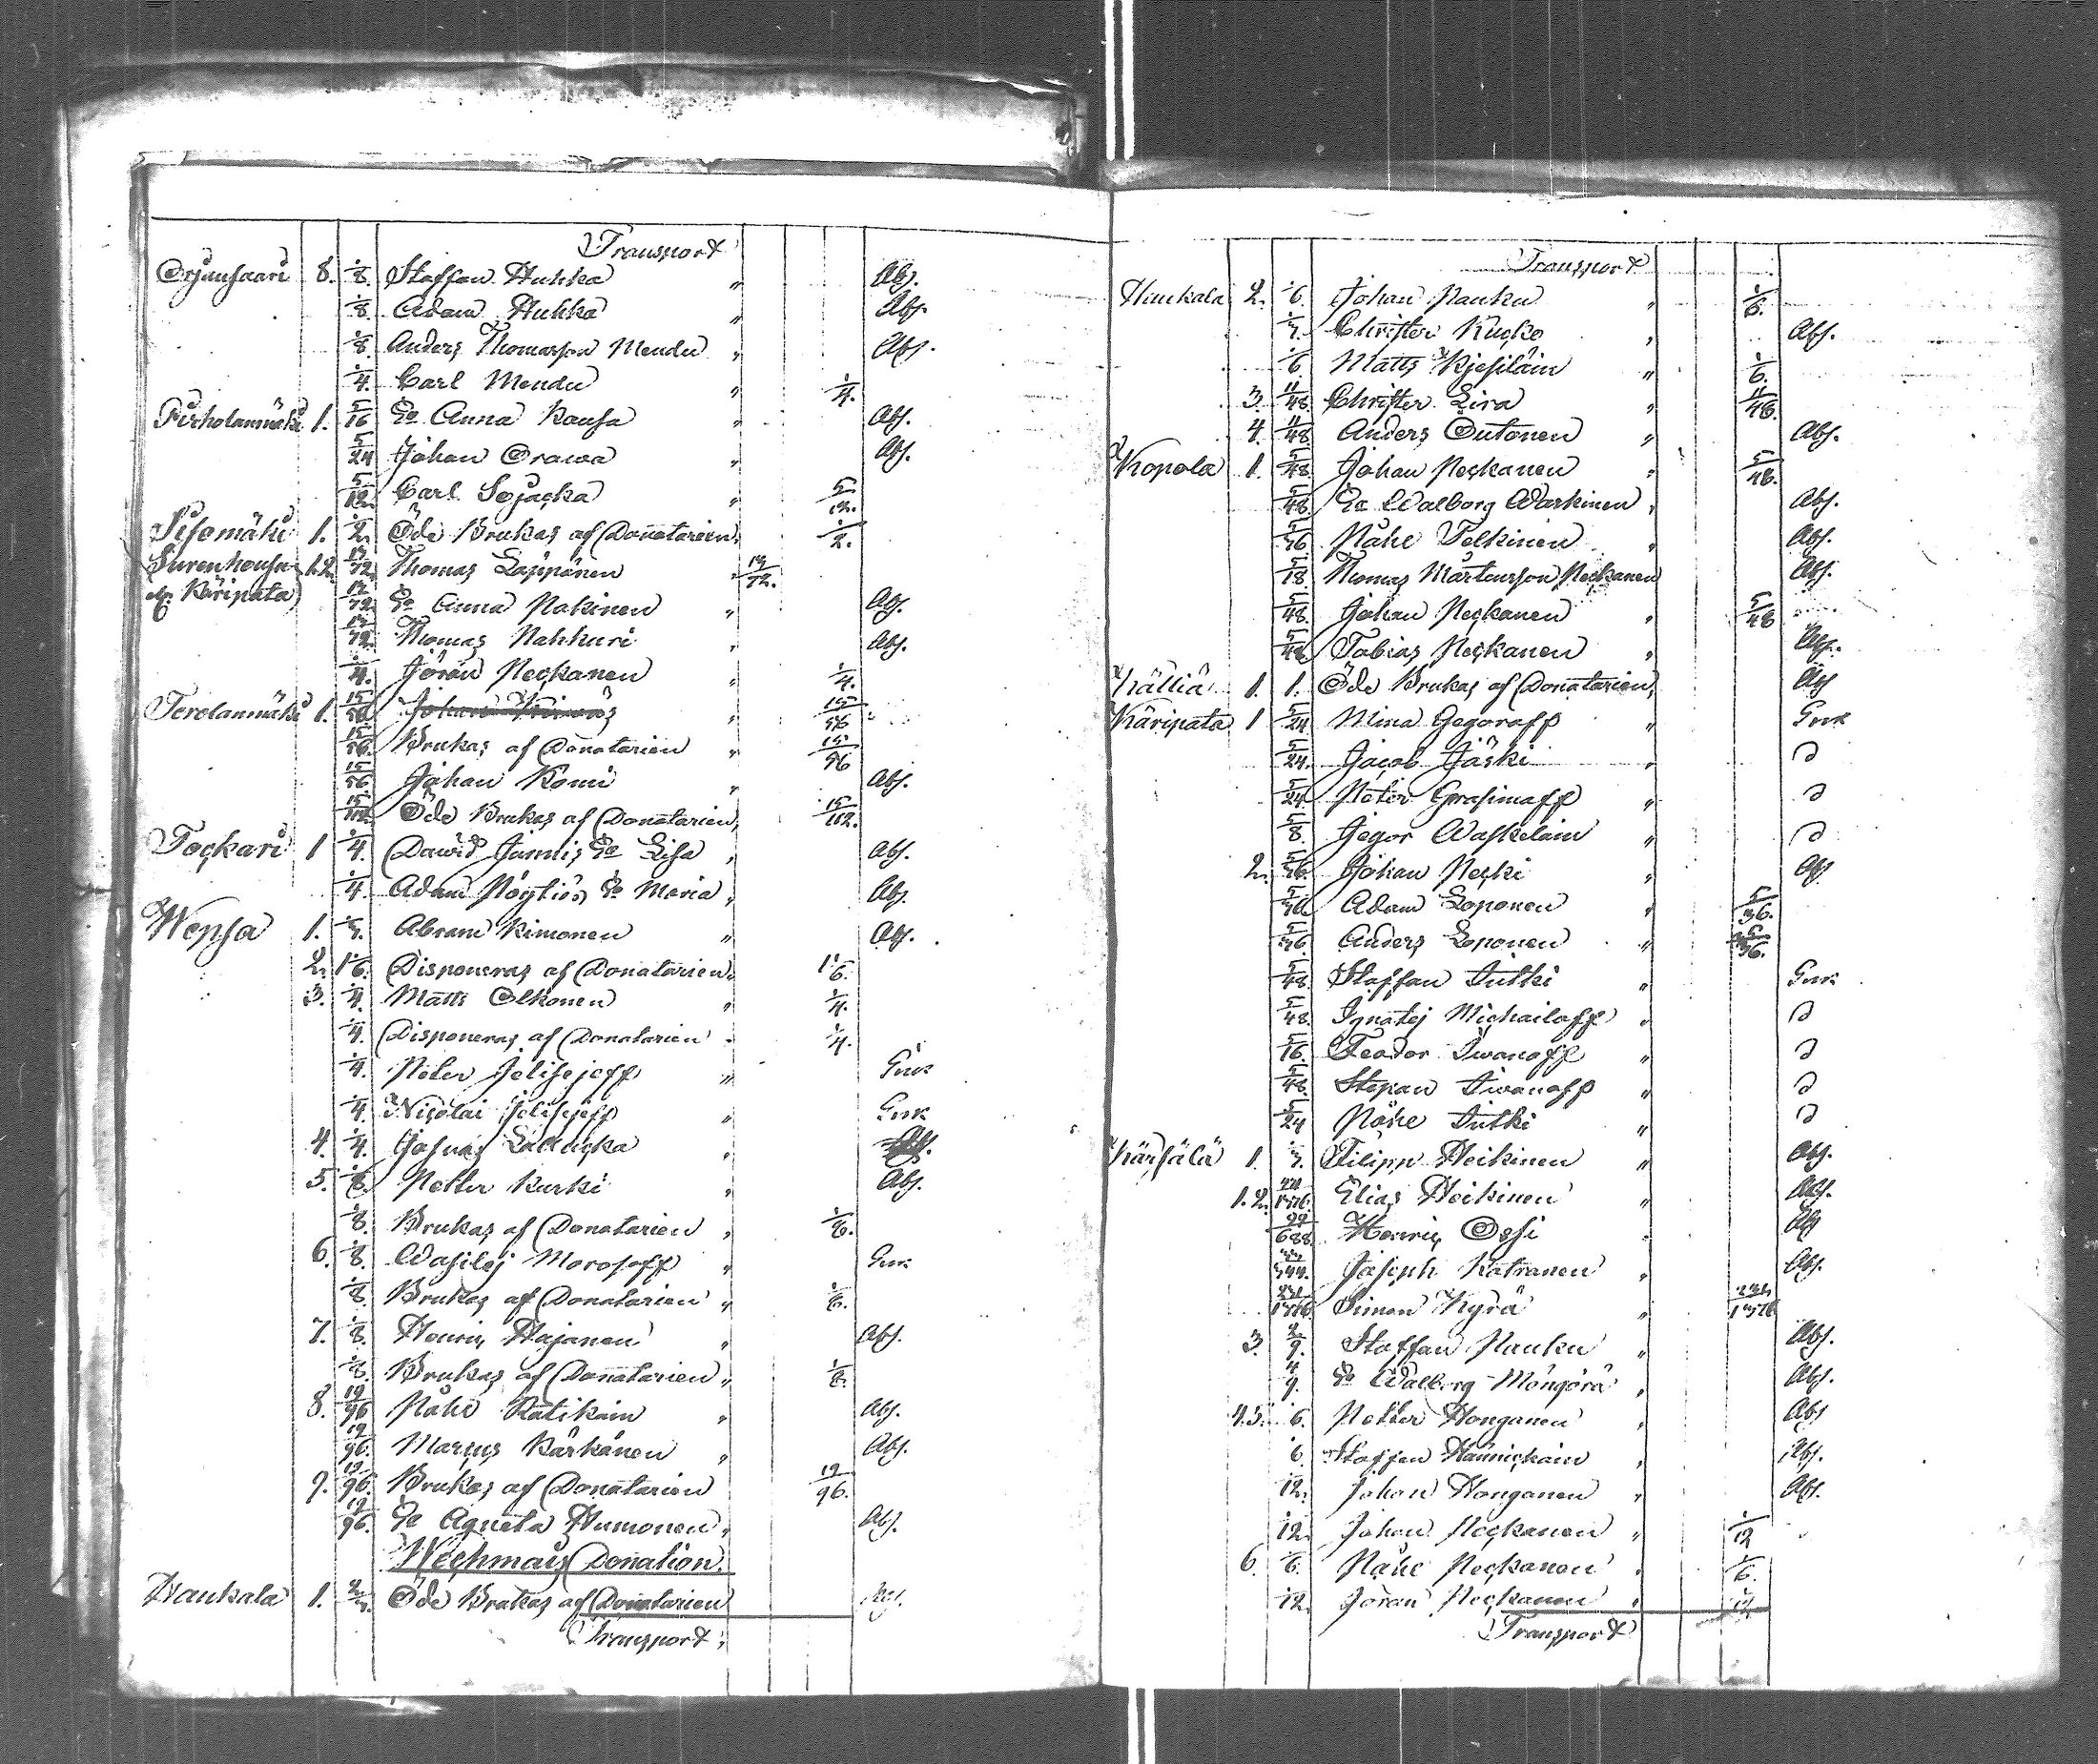 Transport
Orjansaari 8. 1/8. Staffan Huhka " Abs.
1/8. Adam Huhka " Abs.
1/8. Anders Thomasson Mendu " Abs.
1/4. Carl Mendu " 1/4.
Pirholanmäki 1. 5/16 Ea Anna Kausa " Abs.
5/24 Johan Orawa " Abs.
5/12. Carl Sojacka " 5/12.
Sisomäki 1. 1/2. Öde Brukas af Donatarien, 1/2.
Surenhousu 1.2. 17/72. Thomas Läppönen " 17/72.
Käripata 17/72. Ea Anna Pakinen " Abs.
17/72. Thomas Nahkuri " Abs.
1/4. Jöran Peckanen " 1/4.
Terolanmäki 1. 15/56 Johan " 15/56
15/56. Brukas af Donatarien " 15/56
15/56. Johan Komi " Abs.
15/112. Öde Brukas af Donatarien, 15/112.
Tockari 1 1/4. Dawid Jamtis Ea Lisa , Abs.
1/4. Adam Pöytiös Ea Maria , Abs.
Wepsa 1. Abram Kimonen " Abs.
2. 1 1/6. Disponeras af Donatarien. 1 1/6.
3. 1/4. Matts Olkonen " 1/4.
1/4. Disponeras af Donatarien . 1/4.
1/4. Peter Jelisejeff " Grek
1/4. Nicolai Jelisejeff " Grek
4. 1/4. Josua Lallucka , Abs.
5. 1/8. Petter Kurki , Abs.
1/8. Brukas af Donatarien , 1/8.
6. 1/8. Wasilej Morosoff " Grek
1/8. Brukas af Donatarien " 1/8.
7. 1/8. Henric Hajanen " Abs.
1/8. Brukas af Donatarien " 1/8.
8. 19/96 Påhl Ratikain " Abs.
19/96. Marcus Kärkänen " Abs.
9. 19/96. Brukas af Donatarien 19/96.
19/96. Ea Agneta Humonen , Abs.
Wechmais Donation.
Haukala 1. Öde Brukas af Donatarien Abs.
Transport,
Transport
Haukala 2. 1/6. Johan Pauku " 1/6.
Christer Kucko " Abs.
1/6. Matts Kjesiläin " 1/6.
3. 11/48. Christer Lira " 11/48.
4. 11/48. Anders Outonen " Abs.
Kopola 1. 5/48. Johan Peckanen " 5/48.
5/48. Ea Walborg Warkinen , Abs.
5/36 Påhl Pelkinen " Abs.
5/18 Thomas Mårtensson Peckanen Abs.
5/48. Johan Peckanen " 5/48
5/48. Tobias Peckanen " Abs.
Källiä 1. 1. Öde Brukas af Donatarien, Abs
Käripata 1 5/24 Mina Gegoroff " Grek
5/24. Jacob Jäski " D
5/24. Peter Grasimoff " D
5/8. Jegor Waskelain " D
2. 5/36. Johan Pecki " Abs.
5/36 Adam Loponen " 5/36.
5/36 Anders Loponen " 5/36.
5/48. Staffan Jutki " Grek
5/48. Ignatej Michailoff " D
5/16. Feodor Iwanoff " D
5/48. Stepan Iwanoff " D
5/24 Påhl Jutki " D
Kärsälä 1. Filipp Heikinen " Abs.
1.2. Elias Heikinen " Abs.
Henric Ossi " Abs
Joseph Katranen " Abs.
Simon Kyrä "
3. 2/9. Staffan Pauku " Abs.
4/9. Ea Walborg Möngörä , Abs.
4.5. 1/6. Petter Honganen , Abs
1/6. Staffan Hännickäin , Abs.
1/12. Johan Honganen " Abs.
1/12. Johan Peckanen " 1/12
6. 1/6. Påhl Peckanen . 1/6.
1/12. Jöran Peckanen " 1/12
Transport